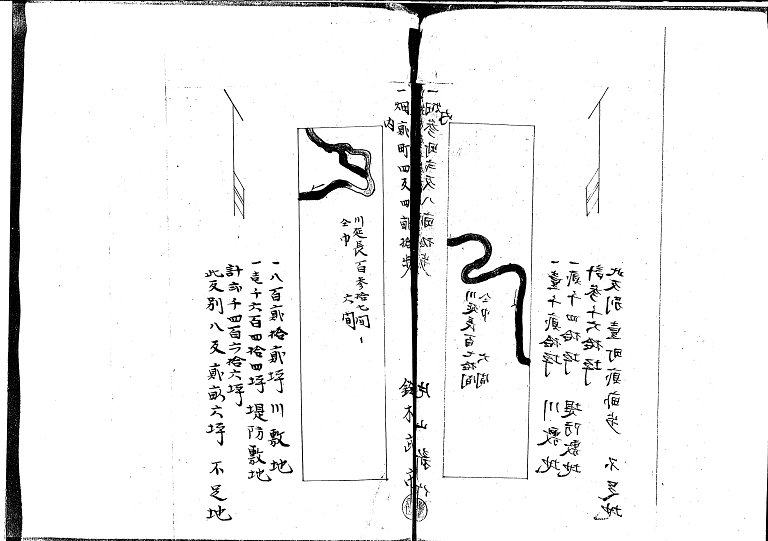 一畑参町弐反八畝拾歩
内
川延長百七拾間
仝巾 六間
一壹千貳拾坪 川敷地
一貳千四拾坪 堤防敷地
計参千六拾坪
此反別壹町貳畝歩 不足地
片山
一田貳町四反四畝拾歩
内
川延長百参拾七間
仝巾 六間
一八百貳拾貳坪 川敷地
一壱千六百四拾四坪 堤防敷地
計弐千四百六拾六坪
此反別八反貳畝六坪 不足地
鈴木